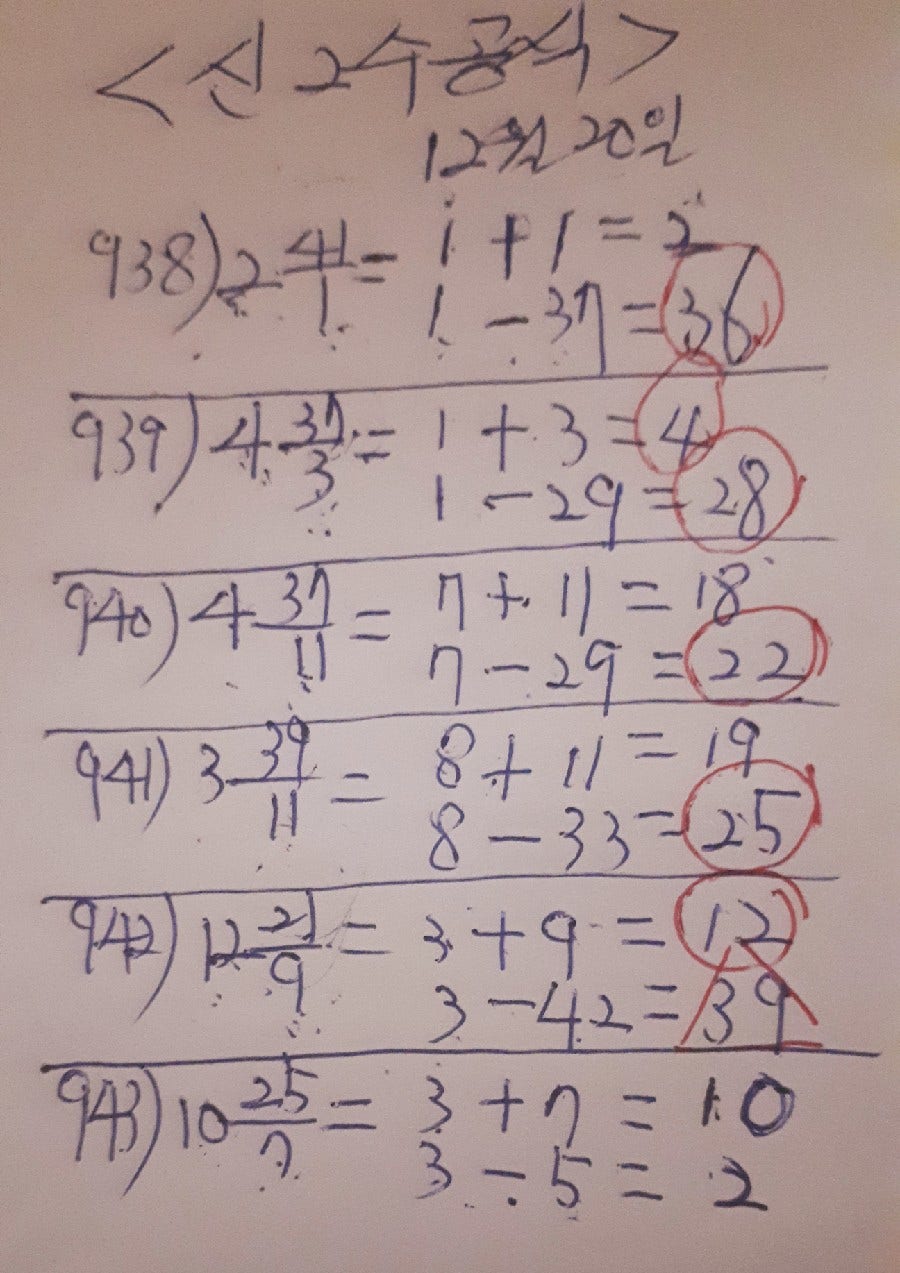 <신2수공식>
12월 20일
938) 2 41/1 = 1 + 1 = 2
1 - 37 = 36
939) 4 37/3 = 1 + 3 = 4
1 - 29 = 28
940) 4 37/11 = 7 + 11 = 18
7 - 29 = 22
941) 3 39/11 = 8 + 11 = 19
8 - 33 = 25
942) 12 21/9 = 3 + 9 = 12
3 - 42 = 39
943) 10 25/7 = 3 + 7 = 10
3 - 5 = 2